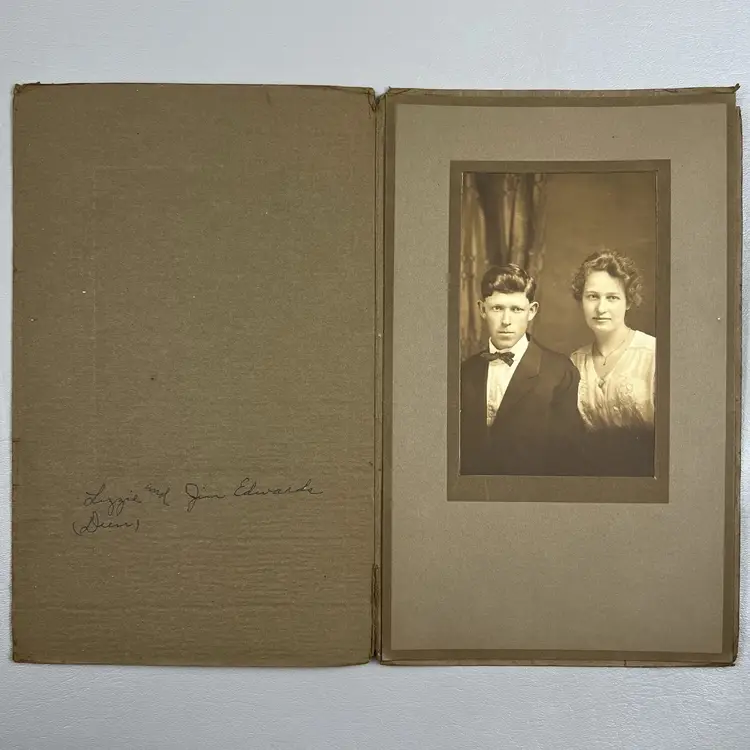 Lizzie and Jim Edwards